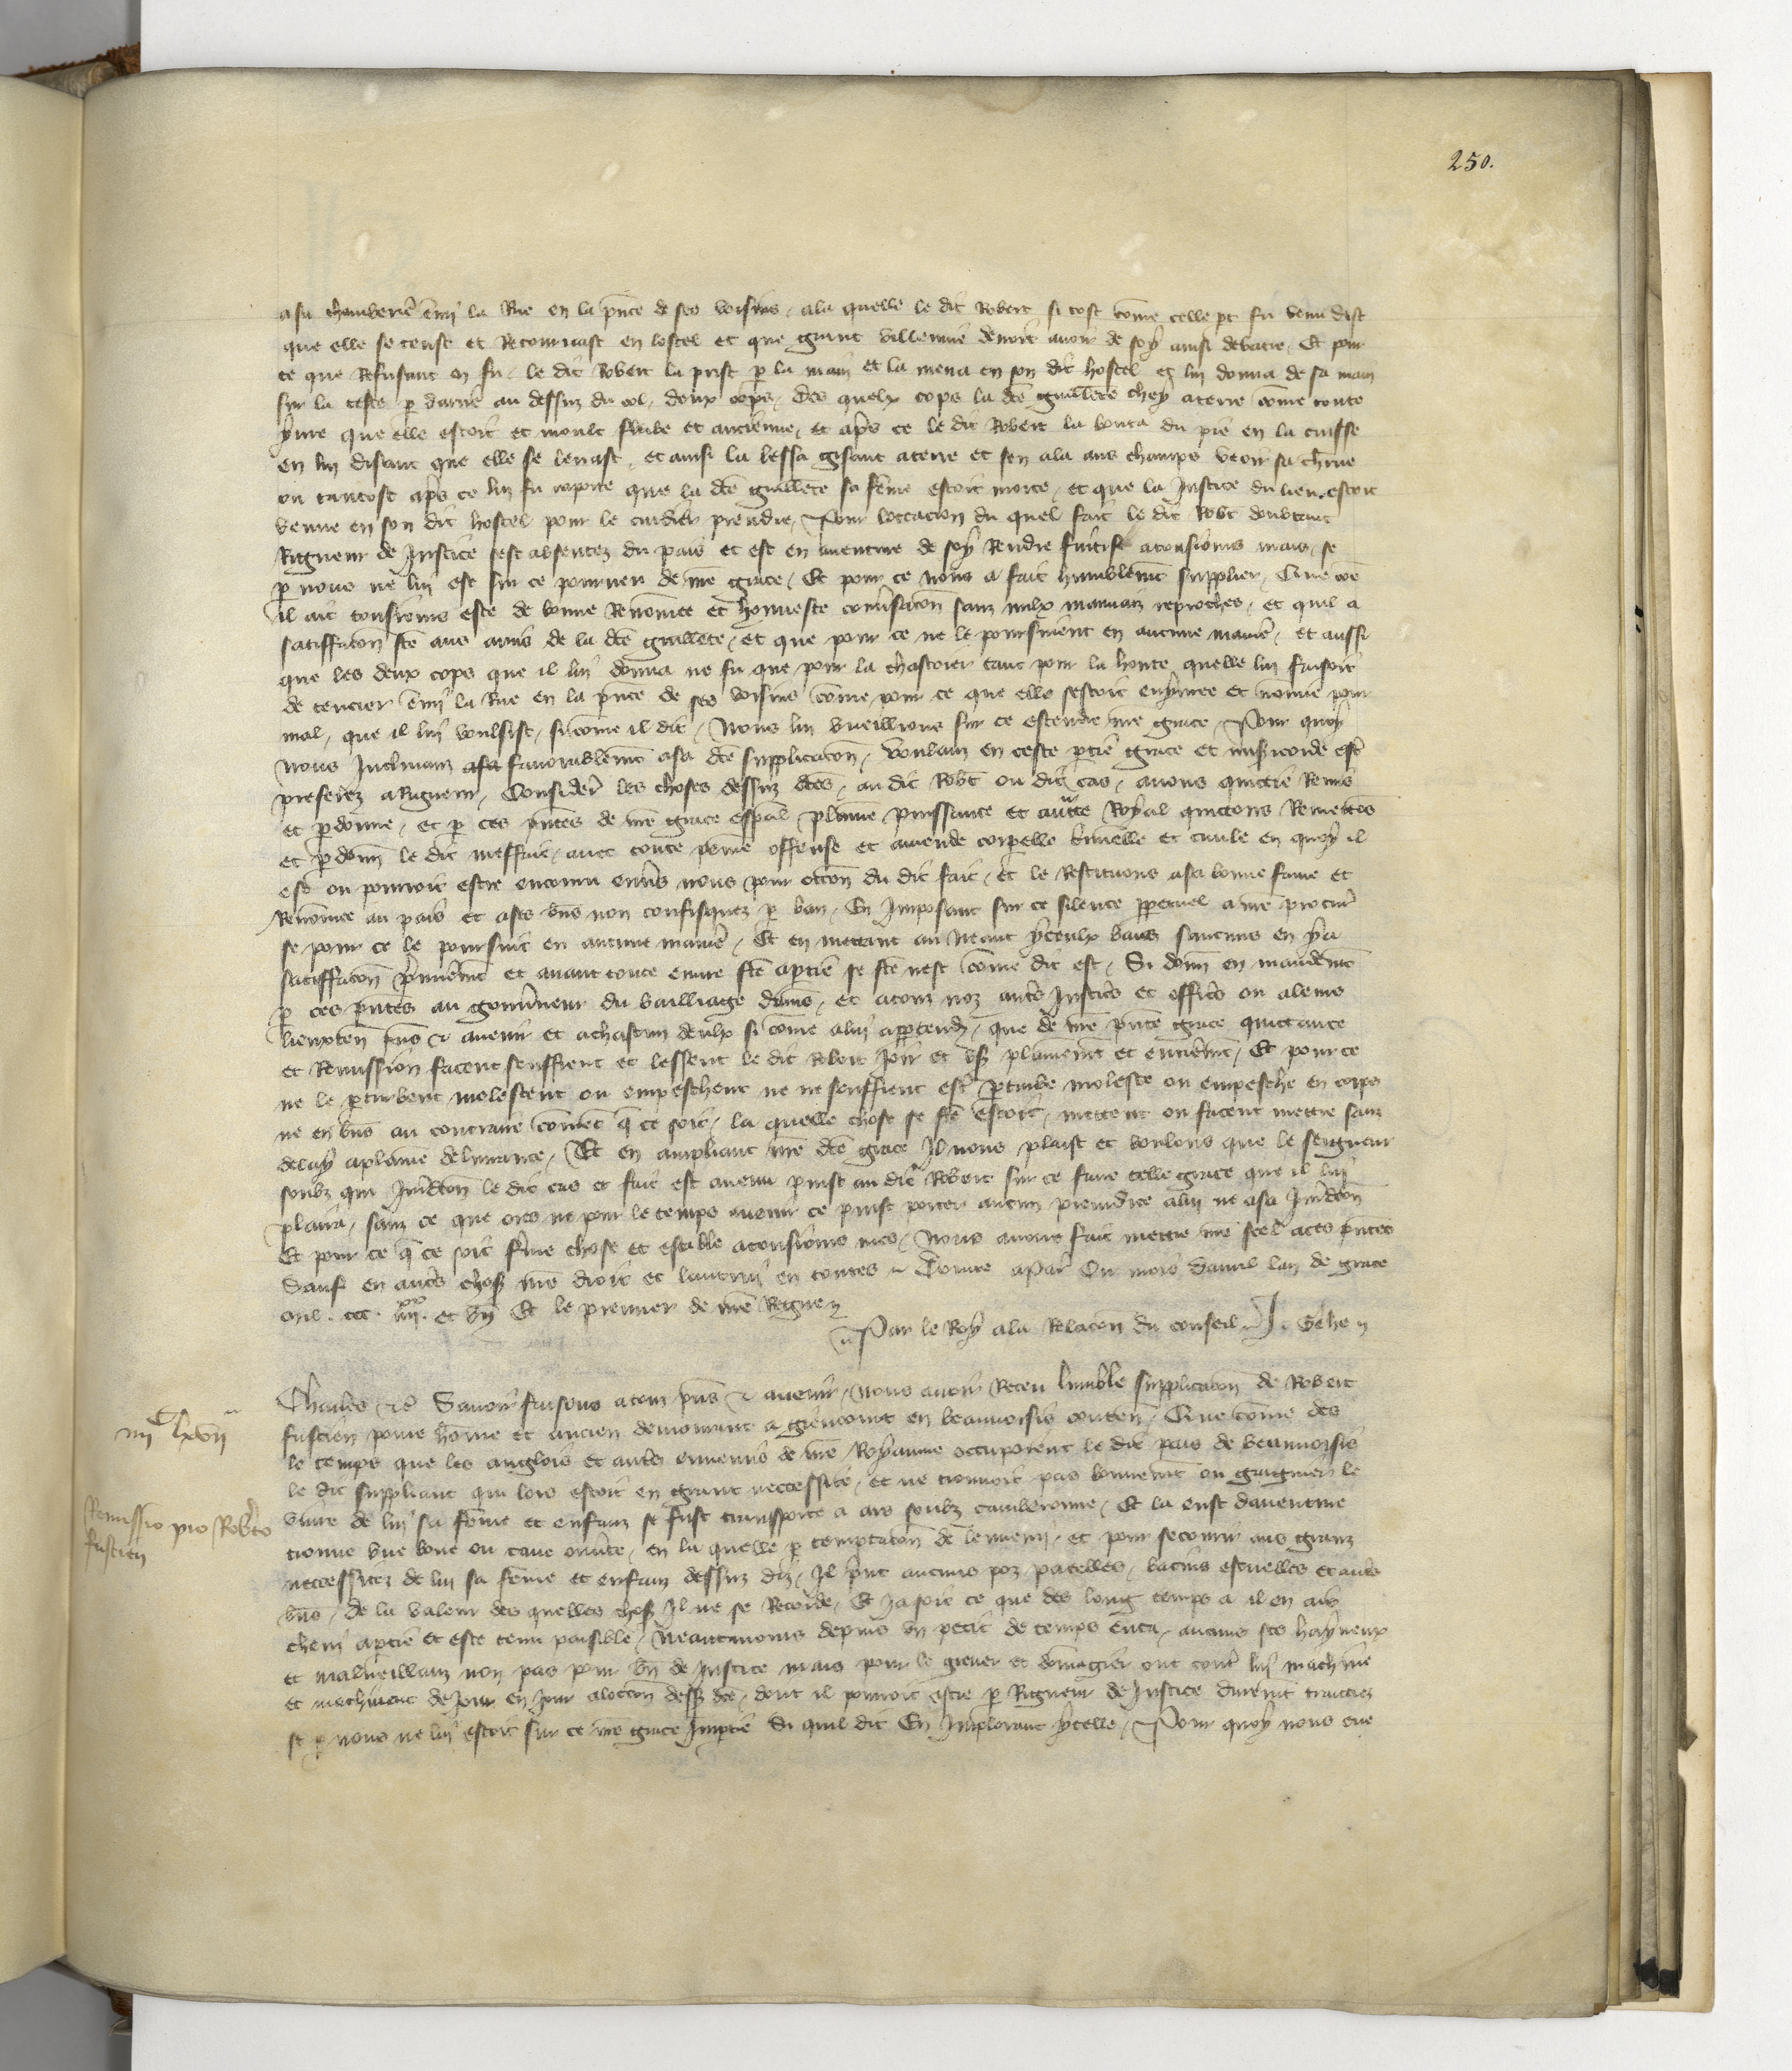 250.
a sa chamberie em̃y la Rue en la pñce de ses voisins, a la quelle le dit Robert si tost cõme celle pt fu venu dist
que elle se teust et Retournast en lostel et que grant villennie devoit avoir de soy ainsi debatre, Et pour
ce que Refusant en fu, le dit Robert la prist p la main et la mena en son dit hostel et lui donna de sa main
sur la teste p darrie au dessuz du col, deux cops, des quelx cops la dcẽ guillẽte chey a terre cõme toute
yvre que elle estoit et moult flebe et ancienne, et ap̃s ce le dit Robert la bouta du pie en la cuisse
en lui disant que elle se levast, et ainsi la lessa gisant a terre et sen ala aus champs veoir sa cherue
ou tantost ap̃s ce lui fu raporte que la dcẽ guillẽte sa fẽme estoit morte, et que la Justice du lieu estoit
venue en son dit hostel pour le cuidier prendre, Pour loccacion du quel fait le dit Robt doubtant
Rigueur de Justice sest absentez du païs et est en aventure de soy Rendre fuitif a tousiours mais, se
p nous ne lui est sur ce pourveu de nr̃e grace, Et pour ce nous a fait humblem̃t supplier, Que cõe
il ait tousiours este de bonne Renõmee et honneste conv̾sacõn sanz nulx mauvais reproches, et quil a
satiffacõn fcẽ aus amis de la dcẽ guillẽte, et que pour ce ne le poursuivent en aucune manie, et aussi
que les deux cops que il lui donna ne fu que pour la chastoier tant pour la honte quelle lui faisoit
de tencier em̃y la Rue en la pñce de ses voisins cõme pour ce que elle sestoit enyvree et nõmie pour
mal, que il lui voulsist, si cõme il dit, Nous lui vueillions sur ce estendre nr̃e grace, Pour quoy
nous Inclinanz favorablem̃t a sa dcẽ supplicacõn, voulanz en ceste p̱tie grace et mis̾icorde est̾
preferez a Rigueur, Consider̾ les choses dessuz dcẽs, au dit Robt ou dit cas, avons quictie Remis
et p̱donne, et p ces pñtes de nr̃e grace esp̃al plaine puissance et auc̃te Royal quictons Remettõs
et p̱donñ le dit meffait, avec toute peine offense et amende corp̱elle c̾minelle et civile en quoy il
est ou pourroit estre encouru env̾s nous pour occõn du dit fait, et le Restituons a sa bonne fame et
Renõmee au païs et a ses biẽs non confisquez p ban, En Imposant sur ce silence p̱petuel a nr̃e procur̾
se pour ce le poursuit en aucune manie, Et en mettant au Neant yceulx bans saucuns en y a
satiffacõn p̾miem̃t et avant toute euvre fcẽ a p̱tie se fcẽ nest cõme dit est, Si donñ en mandem̃t
p ces pñtes au gouv̾neur du bailliage damiẽs, et a touz noz autr̾s Justic̾s et offic̾s ou a leurs
lieuxteñ pñs et avenir et a chascun deulx si cõme a lui app̱tendr̾, que de nr̃e pñte grace quictance
et Remission facent seuffrent et lessent le dit Robert Joïr et us̾ plainem̃t et entierem̃t, Et pour ce
ne le p̱turbent molestent ou empeschent ne ne seuffrent est̾ p̱turbe moleste ou empesche en corps
ne en biẽs au contraire cõment q̃ ce soit, la quelle chose se fcẽ estoit, mettent ou facent mettre sanz
delay a plaine delivrance, Et en ampliant nr̃e dcẽ grace Il nous plaist et voulons que le seigneur
soubz qui Jurid̃cõn le dit cas et fait est avenu puist au dit Robert sur ce faire telle grace que il lui
plaira, sanz ce que ores ne pour le temps avenir ce puist porter aucun preiudice a lui ne a sa Jurid̃cõn
Et pour ce q̃ ce soit ferme chose et estable a tousiours mes, Nous avons fait mettre nr̃e seel a ces pñtes
Sauf en autr̾s chos̾ nr̃e droit et lautruy en toutes, Donne a Par̾ Ou mois davril lan de grace
mil. ccc. iiiixx. et vii Et le premier de nr̃e Regne
Par le Roy a la Relacõn du conseil. J. Gehe
Charles etc̾ Savoir faisons a touz pñs et avenir, Nous avoir Receu lumble supplicacõn de Robert
fustien povre hõme et ancien demourant a giencourt en beauvoisis conteñ, Que cõme des
le temps que les anglois et autr̾s ennemis de nr̃e Royaume occupoient le dit païs de beauvoisis
le dit suppliant qui lors estoit en grant neccessite, et ne trouvoit pas bonnem̃t ou gaignier le
vivre de lui sa fẽme et enfanz se fust transporte a ars soubz cambronne, Et la eust daventure
trouve une bove ou cave ouv̾te, en la quelle p temptacõn de lennemi, et pour secourir aus granz
neccessitez de lui sa fẽme et enfanz dessuz diz, Il print aucuns poz paelles, bacins escuelles et autr̾s
biẽs, de la valeur des quelles chos̾ Il ne se Recorde, Et Ja soit ce que des long temps a il en ait
chevi a p̱tie et este tenu paisible, Neantmoins depuis un petit de temps enca, aucuns ses hayneux
et malveillanz non pas pour bien de Justice mais pour le grever et dõmagier ont cont̾ lui machine
et machinent de Jour en Jour a loccõn dess̾ dcẽ, dont il pourroit estre p Rigueur de Justice durem̃t traictiez
se p nous ne lui estoit sur ce nr̃e grace Imp̱tie Si quil dit En Implorant ycelle, Pour quoy nous eue
iiiiC lxvii
Remissio pro Rob̾to
fustien